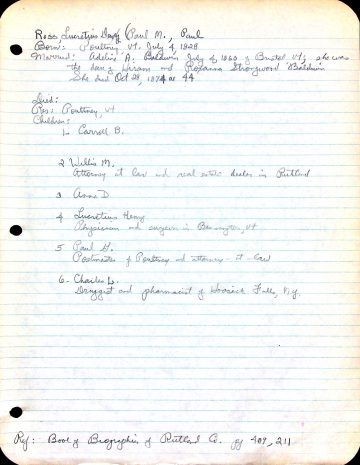 Ross, Lucretius Day (Paul M., Paul
Born: Poultney, Vt. July 4, 1828
Married: Adeline A. Baldwin July of 1860 of Bristol Vt; she was
the dau of Hiram and Roxanna Strongwood Baldwin
She died Oct 28, 1874 ae 44
Died:
Res: Poultney, Vt
Children:
1. Carroll B.
2 Willis M.
Attorney at law and real estate dealer in Rutland
3 Anna D
4 Lucretius Henry
Physician and surgeon in Bennington, Vt
5 Paul H.
Postmaster of Poultney and attorney-at-law
6- Charles L.
Druggist and pharmacist of Hoosick Falls, N.Y.
Ref: Book of Biographies of Rutland Co. pg 209, 211